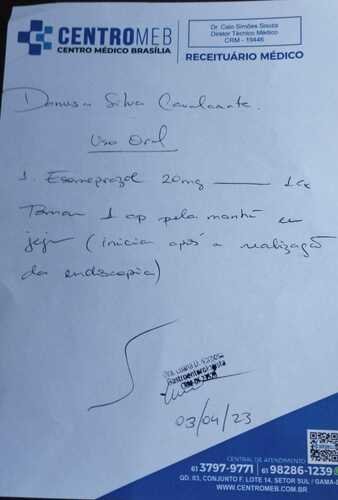 CENTROMEB
CENTRO MÉDICO BRASÍLIA
Dr. Caio Simões Souza
Diretor Técnico Médico
CRM - 19446
RECEITUÁRIO MÉDICO
Silva Cavalcante.
Uso Oral
1. Esomeprazol 20mg 1cx
Tomar 1 cp pela manhã em
jejum (iniciar após a realização
da endoscopia)
Gastroenterologista
03/04/23
CENTRAL DE ATENDIMENTO
61 3797-9771 | 61 98286-1239
QD. 03, CONJUNTO F, LOTE 14, SETOR SUL / GAMA-
WWW.CENTROMEB.COM.BR